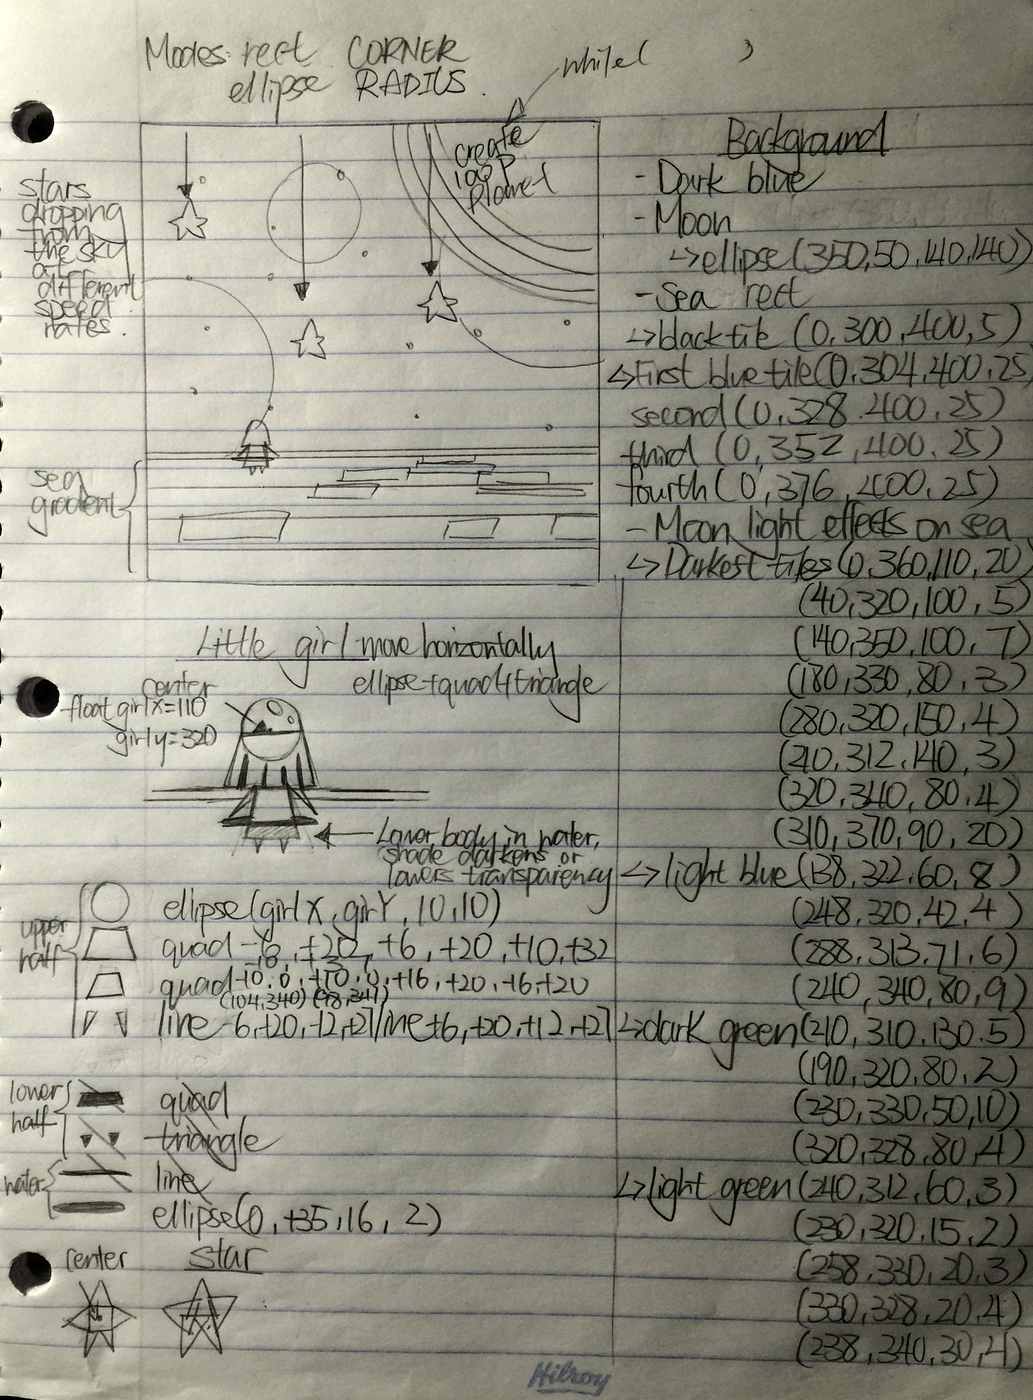 Modes: rect CORNER
ellipse RADIUS.
while( )
create
loop
planet
stars
dropping
from
the sky
at
different
speed
rates.
sea
gradient
Background
- Dark blue
- Moon
↳ellipse(350,50,140,140)
- Sea rect
↳black tile (0,300,400,5)
↳First blue tile(0,304,400,25)
second(0,328,400,25)
third (0,352,400,25)
fourth(0,376,400,25)
- Moon light effects on sea
↳Darkest tiles(0,360,110,20)
(40,320,100,5)
(140,350,100,7)
(180,330,80,3)
(280,320,150,4)
(210,312,140,3)
(320,340,80,4)
(310,370,90,20)
↳light blue(138,322,60,8)
(248,320,42,4)
(288,313,71,6)
(240,340,80,9)
↳dark green(210,310,130,5)
(190,320,80,2)
(230,330,50,10)
(320,328,80,4)
↳light green(240,312,60,3)
(230,320,15,2)
(258,330,20,3)
(330,328,20,4)
(238,340,30,4)
Little girl move horizontally
ellipse+quad+triangle
center
float girlX=110
girly=320
Lower body in water,
shade darkens or
lowers transparency
upper
half
ellipse(girlX,girlY,10,10)
quad , +20, +6, +20, +10, +32
quad -10, 0, +10, 0, +16, +20, -16, +20
(104,340) (98,347)
line -6,+20,-12,+27 line +6,+20,+12,+27
lower
half
quad
triangle
water
line
ellipse(0,+35,16,2)
center
star
Hilroy